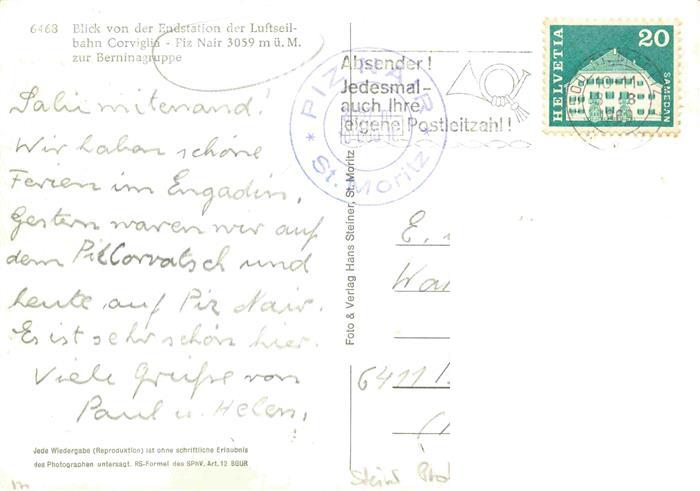 6468 Blick von der Endstation der Luftseil-
bahn Corviglia - Piz Nair 3059 m ü. M.
zur Berninagruppe
Salü mitenand!
Wir haben schöne
Ferien im Engadin,
Gestern waren wir auf
dem Piz Corvatsch und
heute auf Piz Nair.
Es ist sehr schön hier.
Viele Grüsse von
Paul u. Helen.
Jede Wiedergabe (Reproduktion) ist ohne schriftliche Erlaubnis
des Photographen untersagt. RS-Formel des SPhV. Art. 12 BGUR
Foto & Verlag Hans Steiner, St. Moritz
* PIZ NAIR *
St. Moritz
Absender!
Jedesmal-
auch Ihre
eigene Postleitzahl!
HELVETIA
20
SAMEDAN
E.
6411